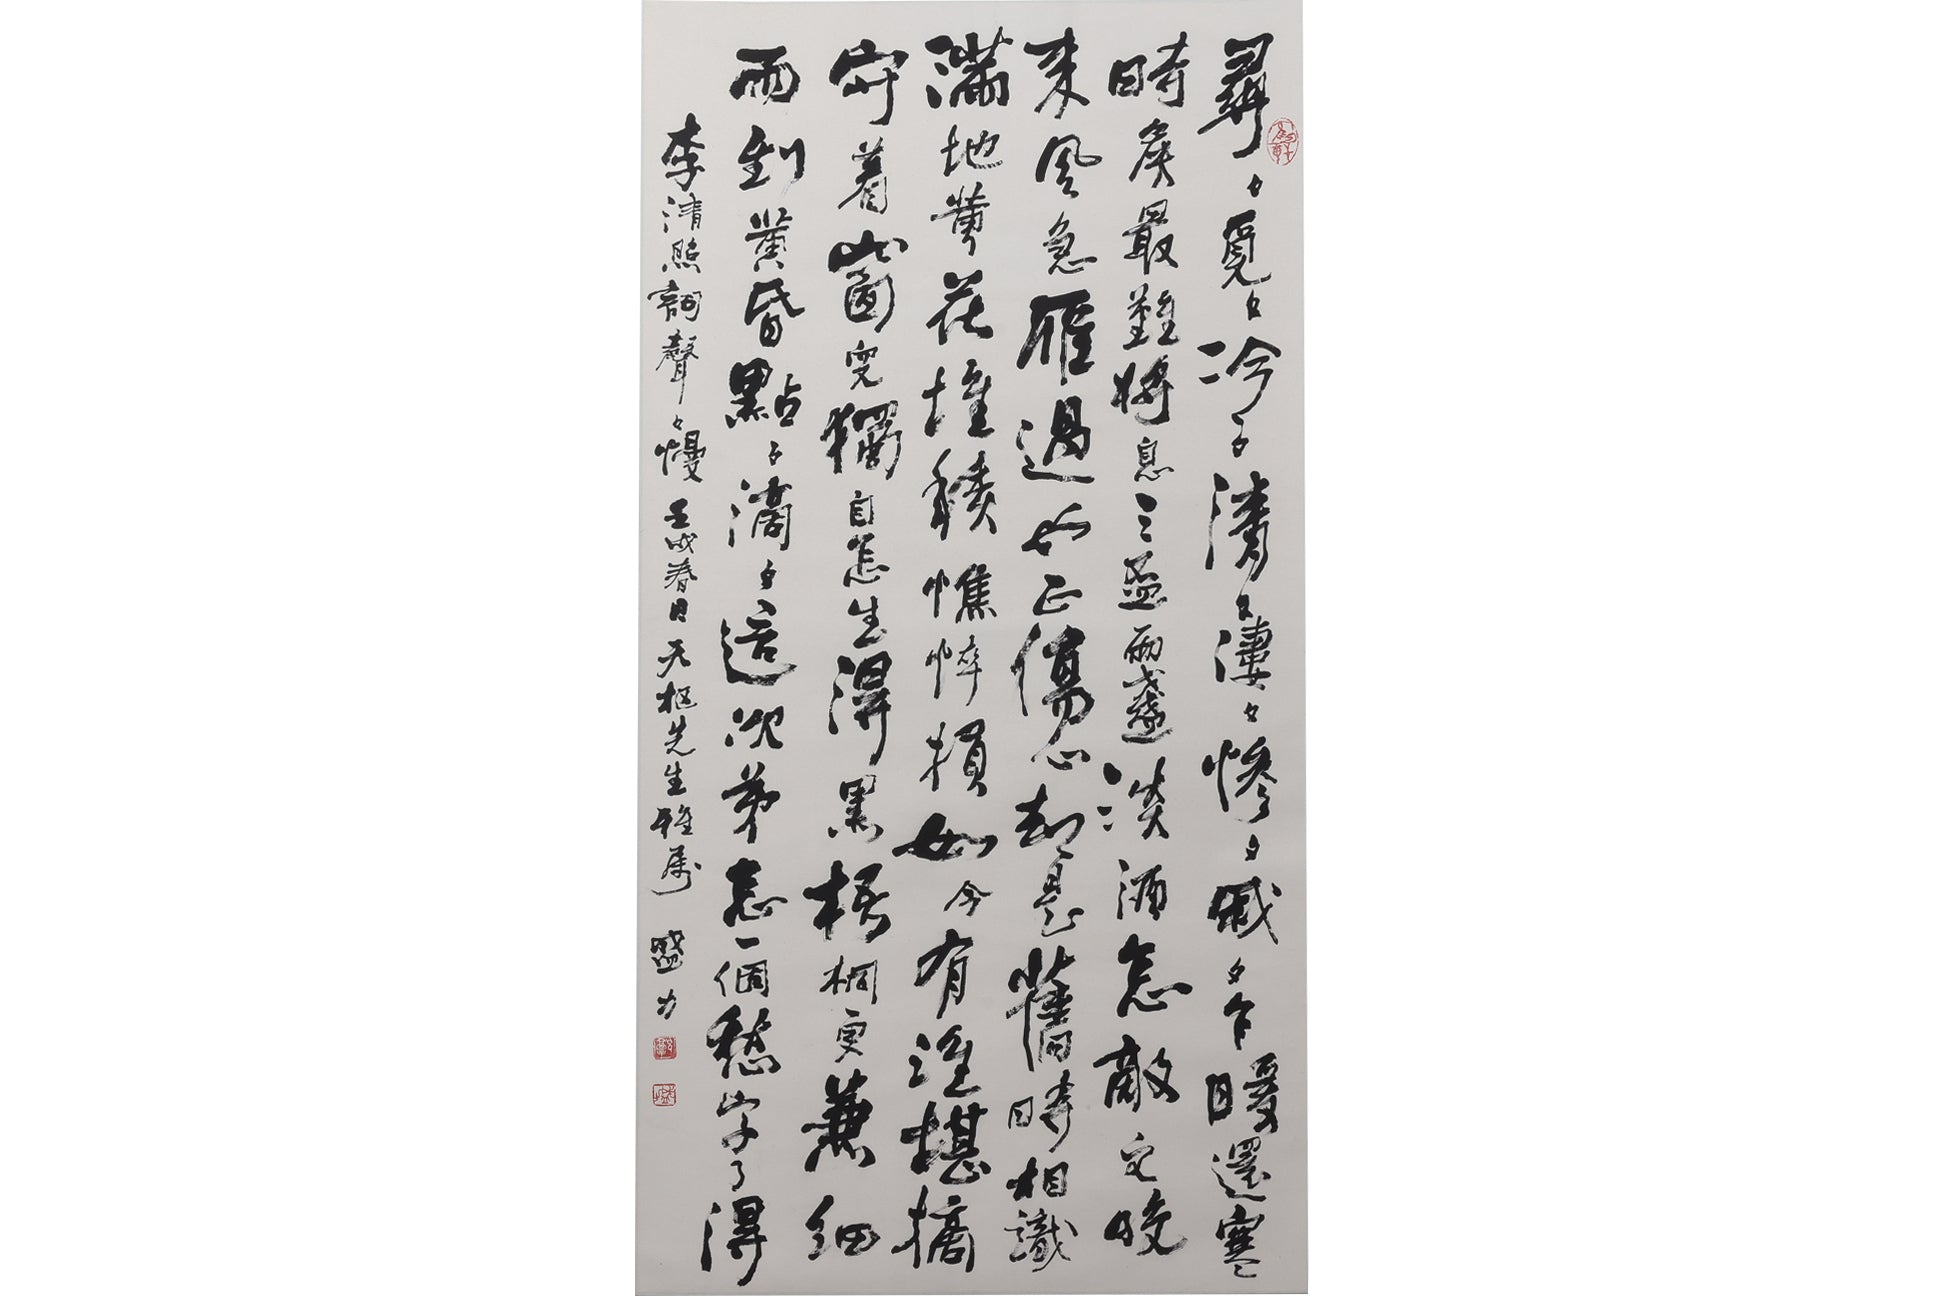 尋々覓々冷々清々淒々慘々戚々乍暖還寒
時候最難將息三盃兩盞淡酒怎敵它晚
來風急雁過也正傷心却是舊時相識
滿地黃花堆積憔悴損如今有誰堪摘
守着窗兒獨自怎生得黑梧桐更兼細
雨到黃昏點々滴々這次第怎一個愁字了得
李清照詞聲々慢 壬戌春日 天樞先生雅屬 盛力